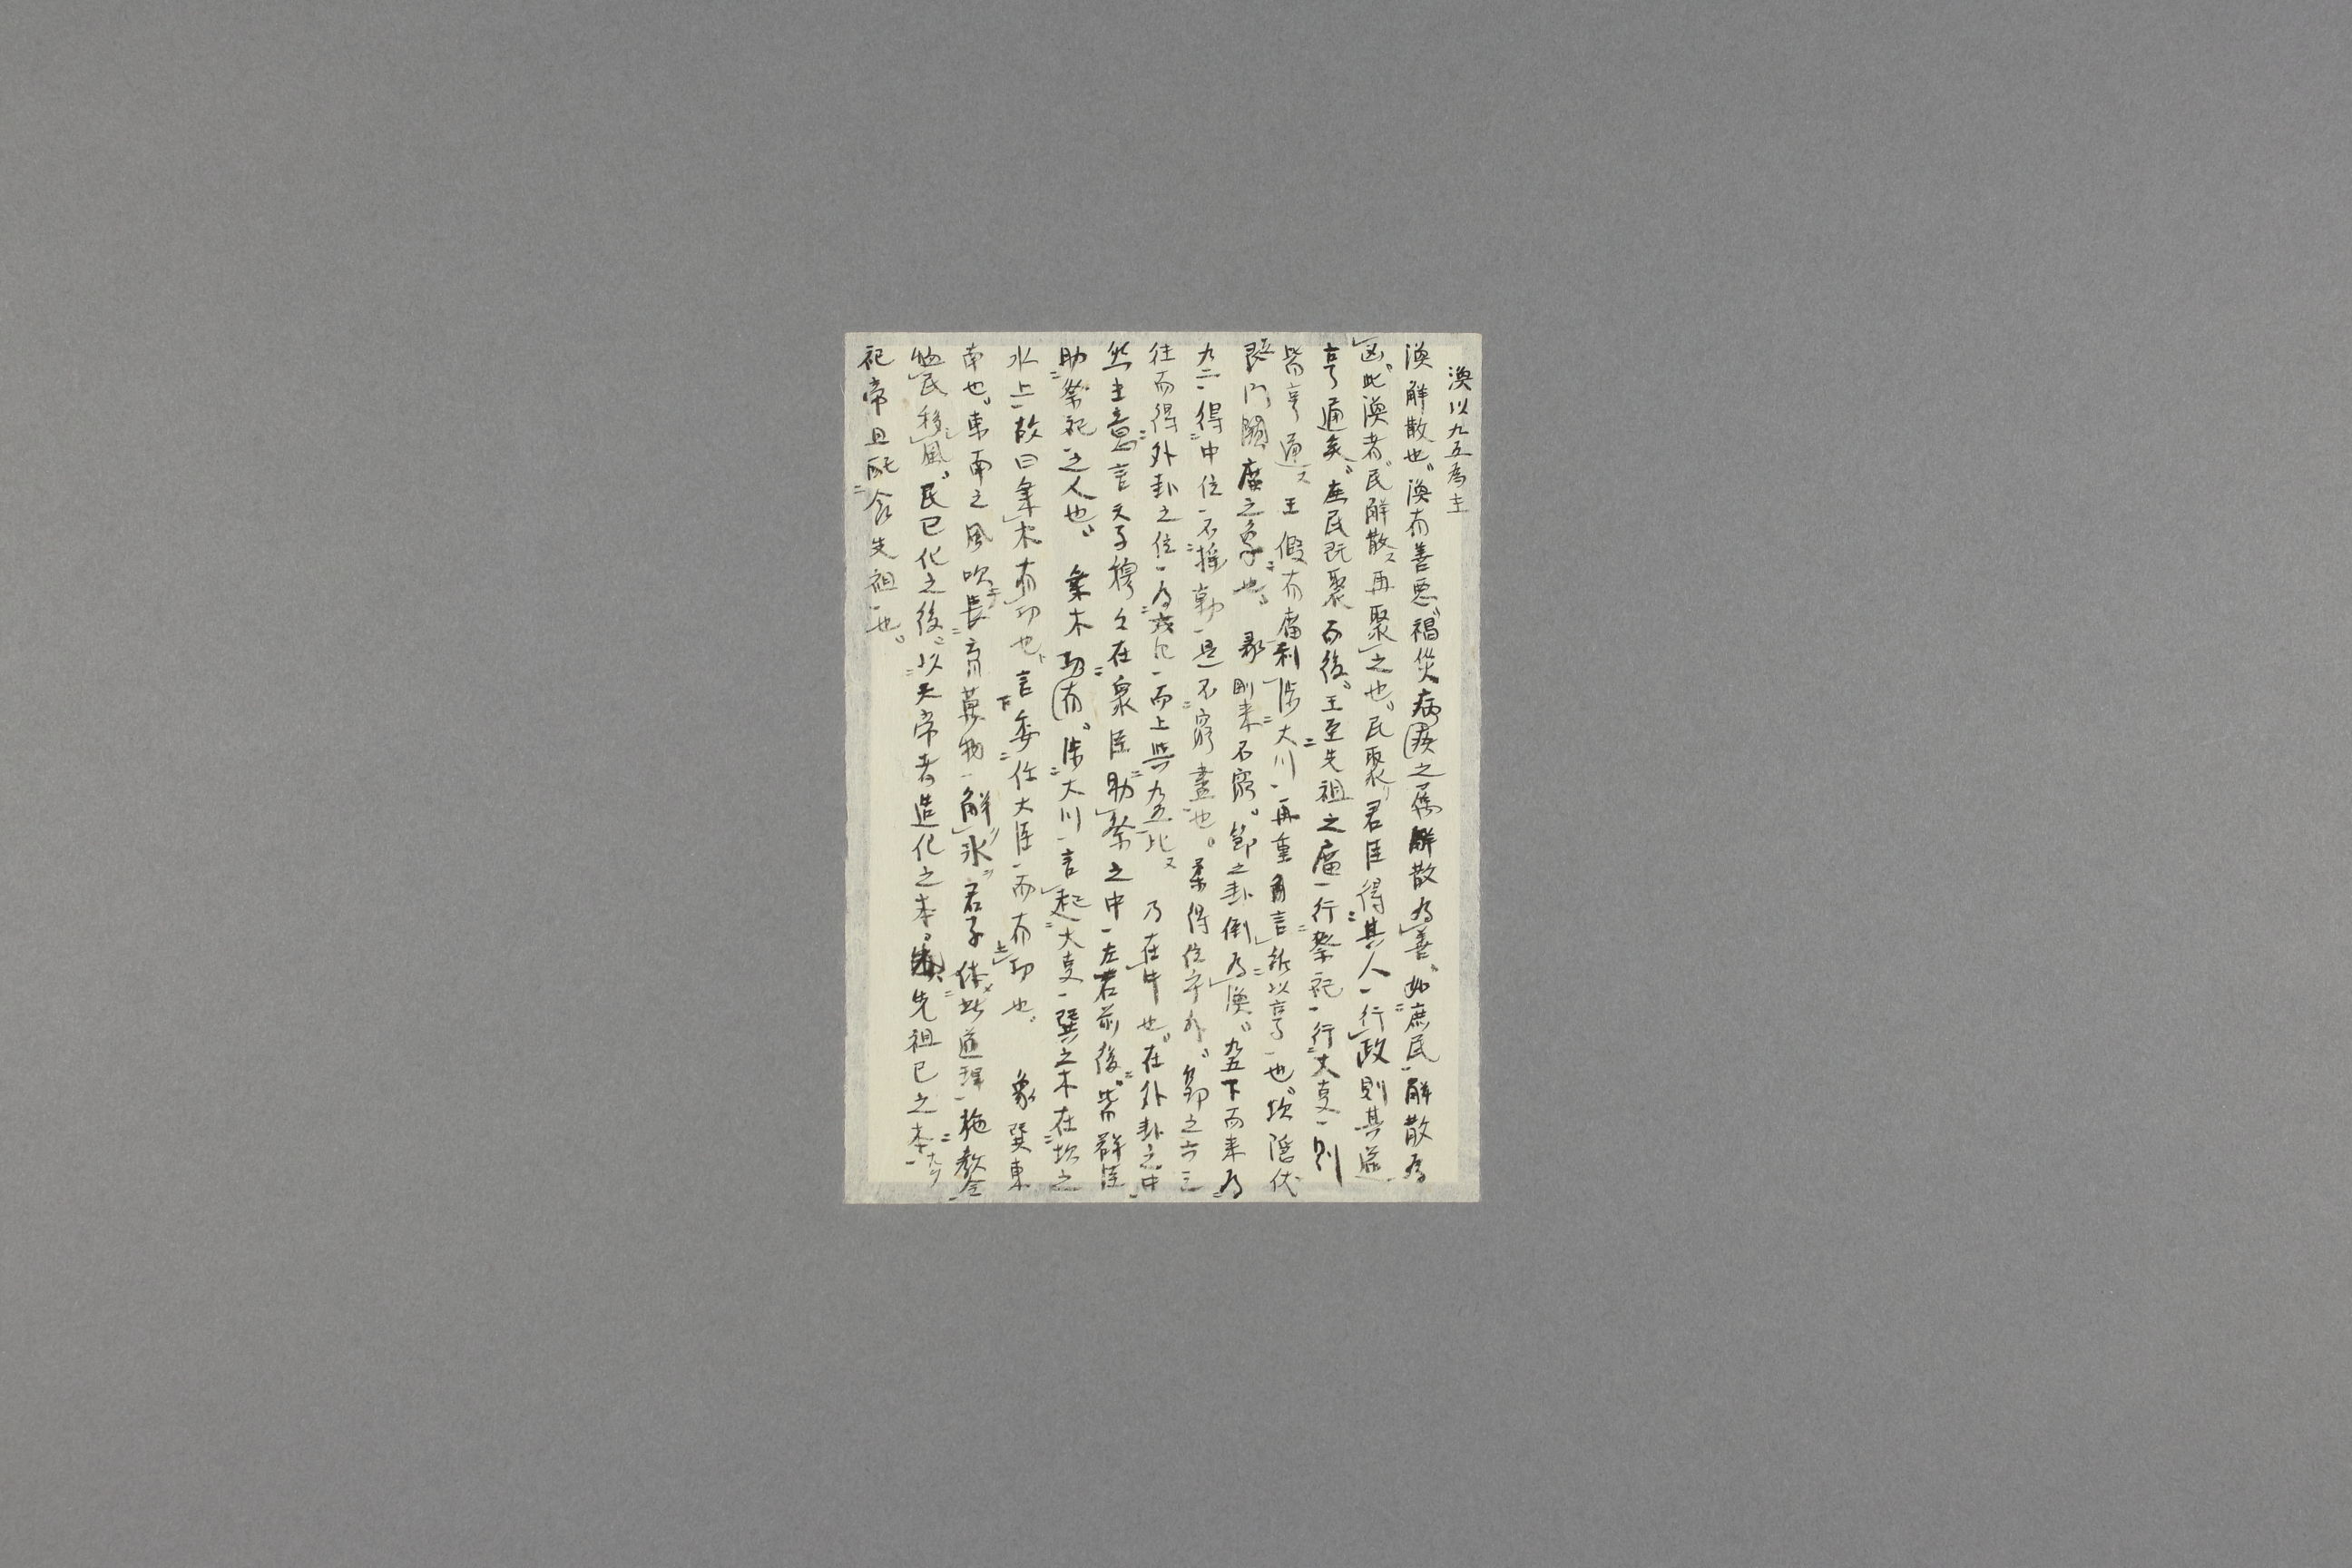 渙以九五為主
渙解散也渙有善悪禍災病疾之属解散為善如庶民解散為
凶此渙者民解散再聚之也民聚君臣得其人行政則其道
亨通矣庶民既聚而後王至先祖之廟行祭祀行大事則
皆亨通 王假有廟利渉大川再重言所以亨也坎隠伏
艮門闕廟之象也 彖剛来不窮節之卦倒為渙九五下而来為
九二得中位不揺動是不窮盡也柔得位乎外節之六三
往而得外卦之位為六四而上與九五比 乃在中也在外卦之中
然主意言天子穆々在衆臣助祭之中左右前後皆群臣
助祭祀之人也 乗木功有渉大川言起大事巽之木在坎之
水上故曰乗木有功也言委任大臣而有功也 象巽東
南也東南之風吹長育萬物解氷君子体此道理施教令
民移風民已化之後以天帝者造化之本先祖已之本
祀帝且配食先祖也